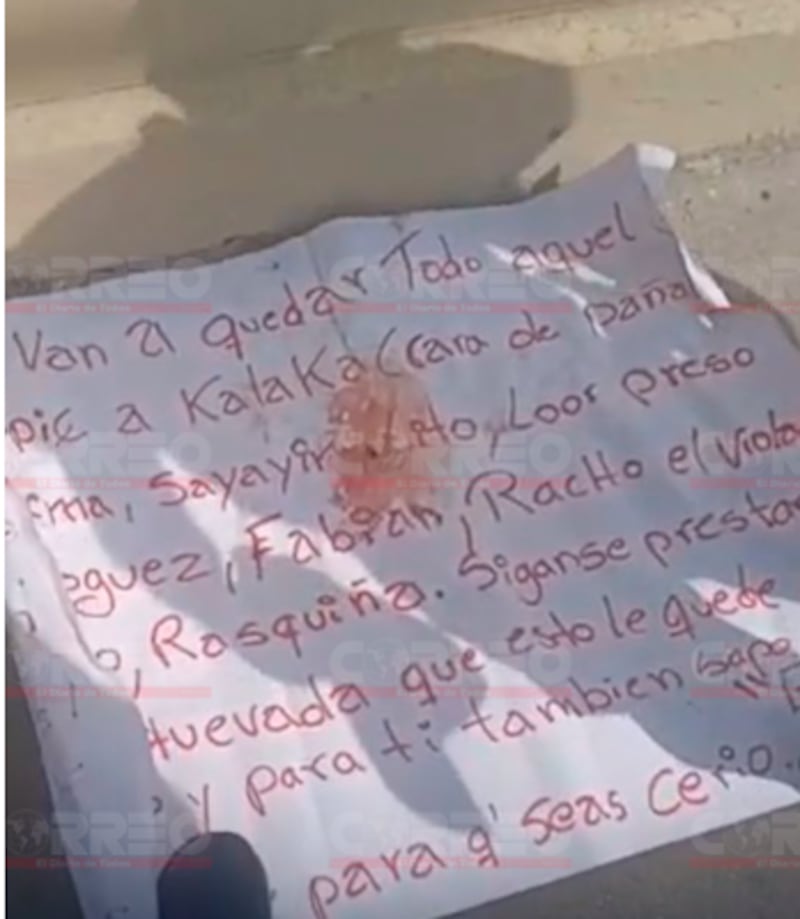 Van a quedar Todo aquel
a Kalaka (Cara de paña
Sayayin Lito, Loor preso
eguez, Fabian, Racho el viola
o, Rasquiña. Siganse prestan
huevada que esto le quede
y para ti tambien sapo
para q' seas Cerio.
CORREO
El Diario de Todos